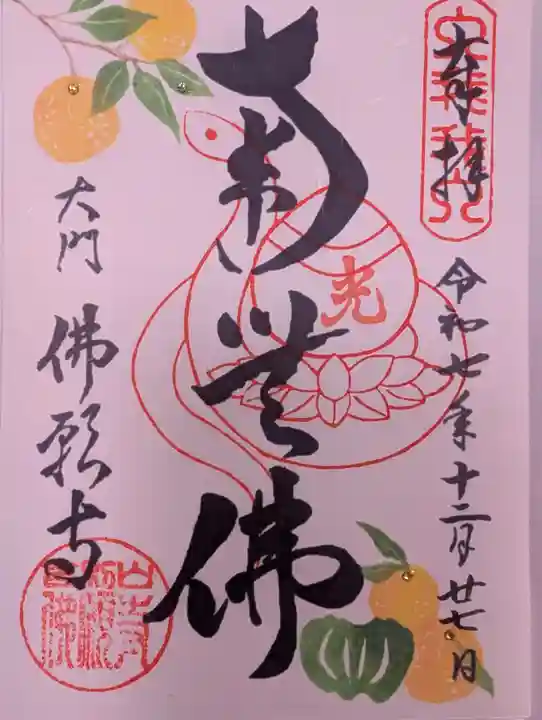 奉拝
令和七年十二月廿七日
南無佛
光
大門
佛願寺